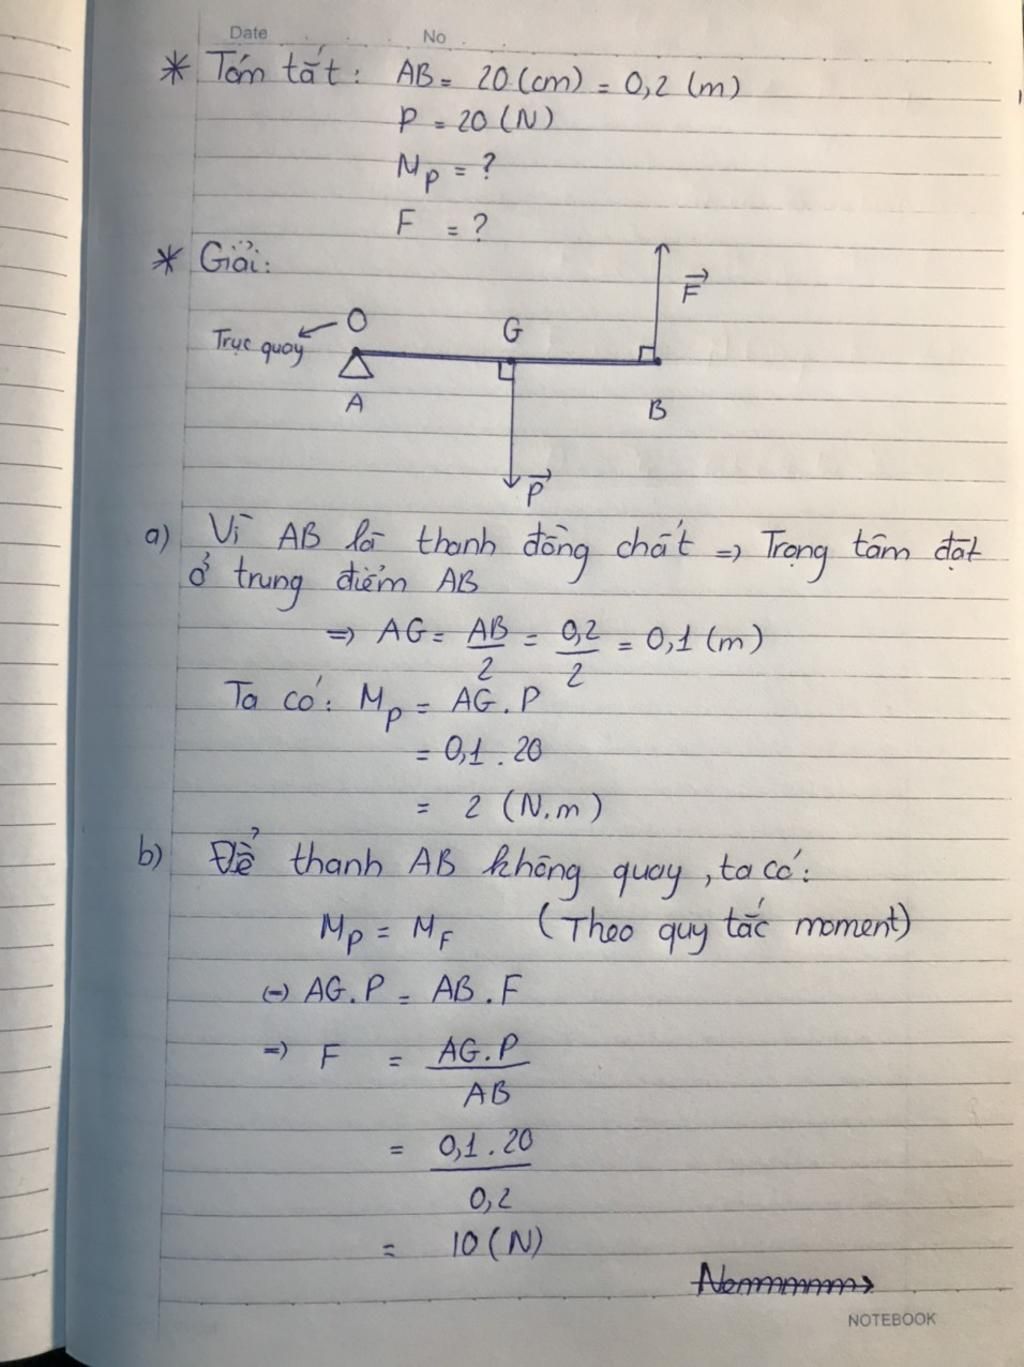 Date No
* Tóm tắt: AB = 20 (cm) = 0,2 (m)
P = 20 (N)
Mp = ?
F = ?
* Giải:
F
O
G
Trục quay
A
B
P
a) Vì AB là thanh đồng chất => Trọng tâm đặt
ở trung điểm AB
=> AG = AB/2 = 0,2/2 = 0,1 (m)
Ta có: Mp = AG. P
= 0,1 . 20
= 2 (N.m)
b) Để thanh AB không quay, ta có:
Mp = MF (Theo quy tắc moment)
(-) AG.P = AB.F
=> F = AG.P/AB
= 0,1 . 20/0,2
= 10 (N)
NOTEBOOK